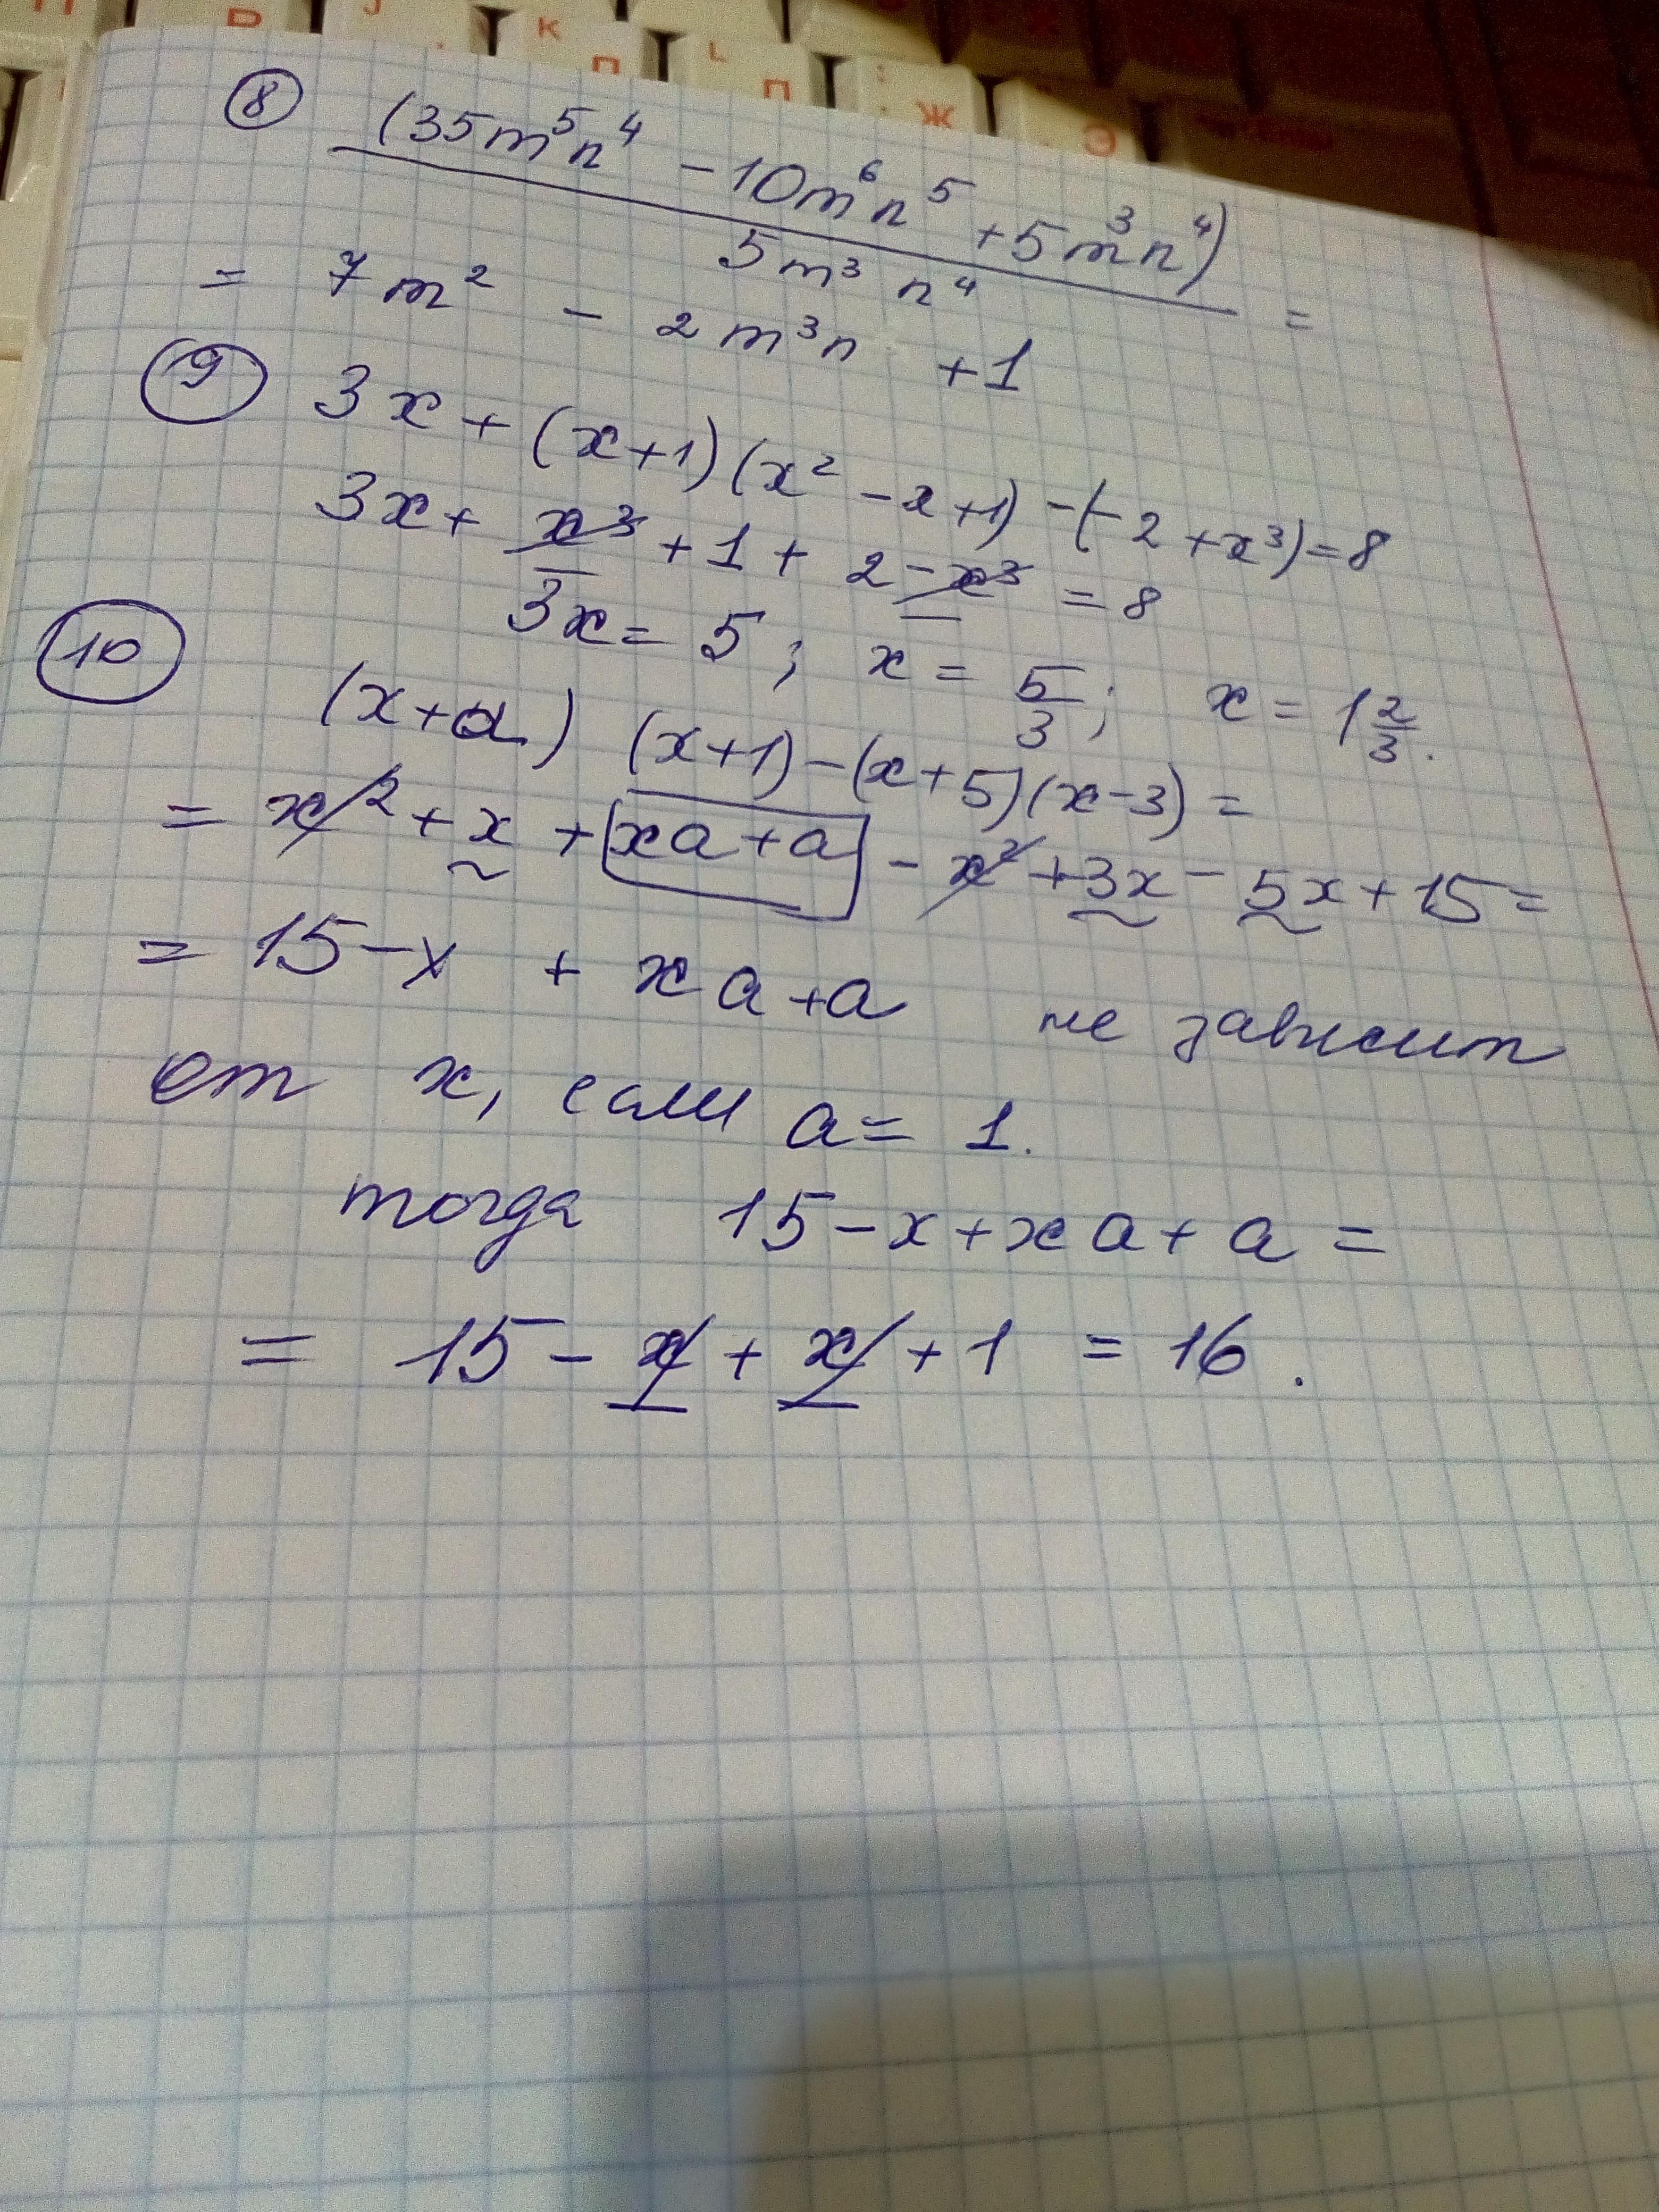 П Ь J K П L П : Ж Э
⑧ (35m⁵n⁴ - 10m⁶n⁵ + 5m³n⁴)
5m³ n⁴ =
= 7m² - 2m³n + 1
⑨ 3x + (x+1)(x² - x + 1) - (-2 + x³) = 8
3x + x³ + 1 + 2 - x³ = 8
3x = 5; x = 5/3; x = 1 2/3.
⑩ (x+a) (x+1) - (x+5)(x-3) =
= x² + x + xa + a - x² + 3x - 5x + 15 =
= 15 - x + xa + a не зависит
от x, если a = 1.
тогда 15 - x + xa + a =
= 15 - x + x + 1 = 16.